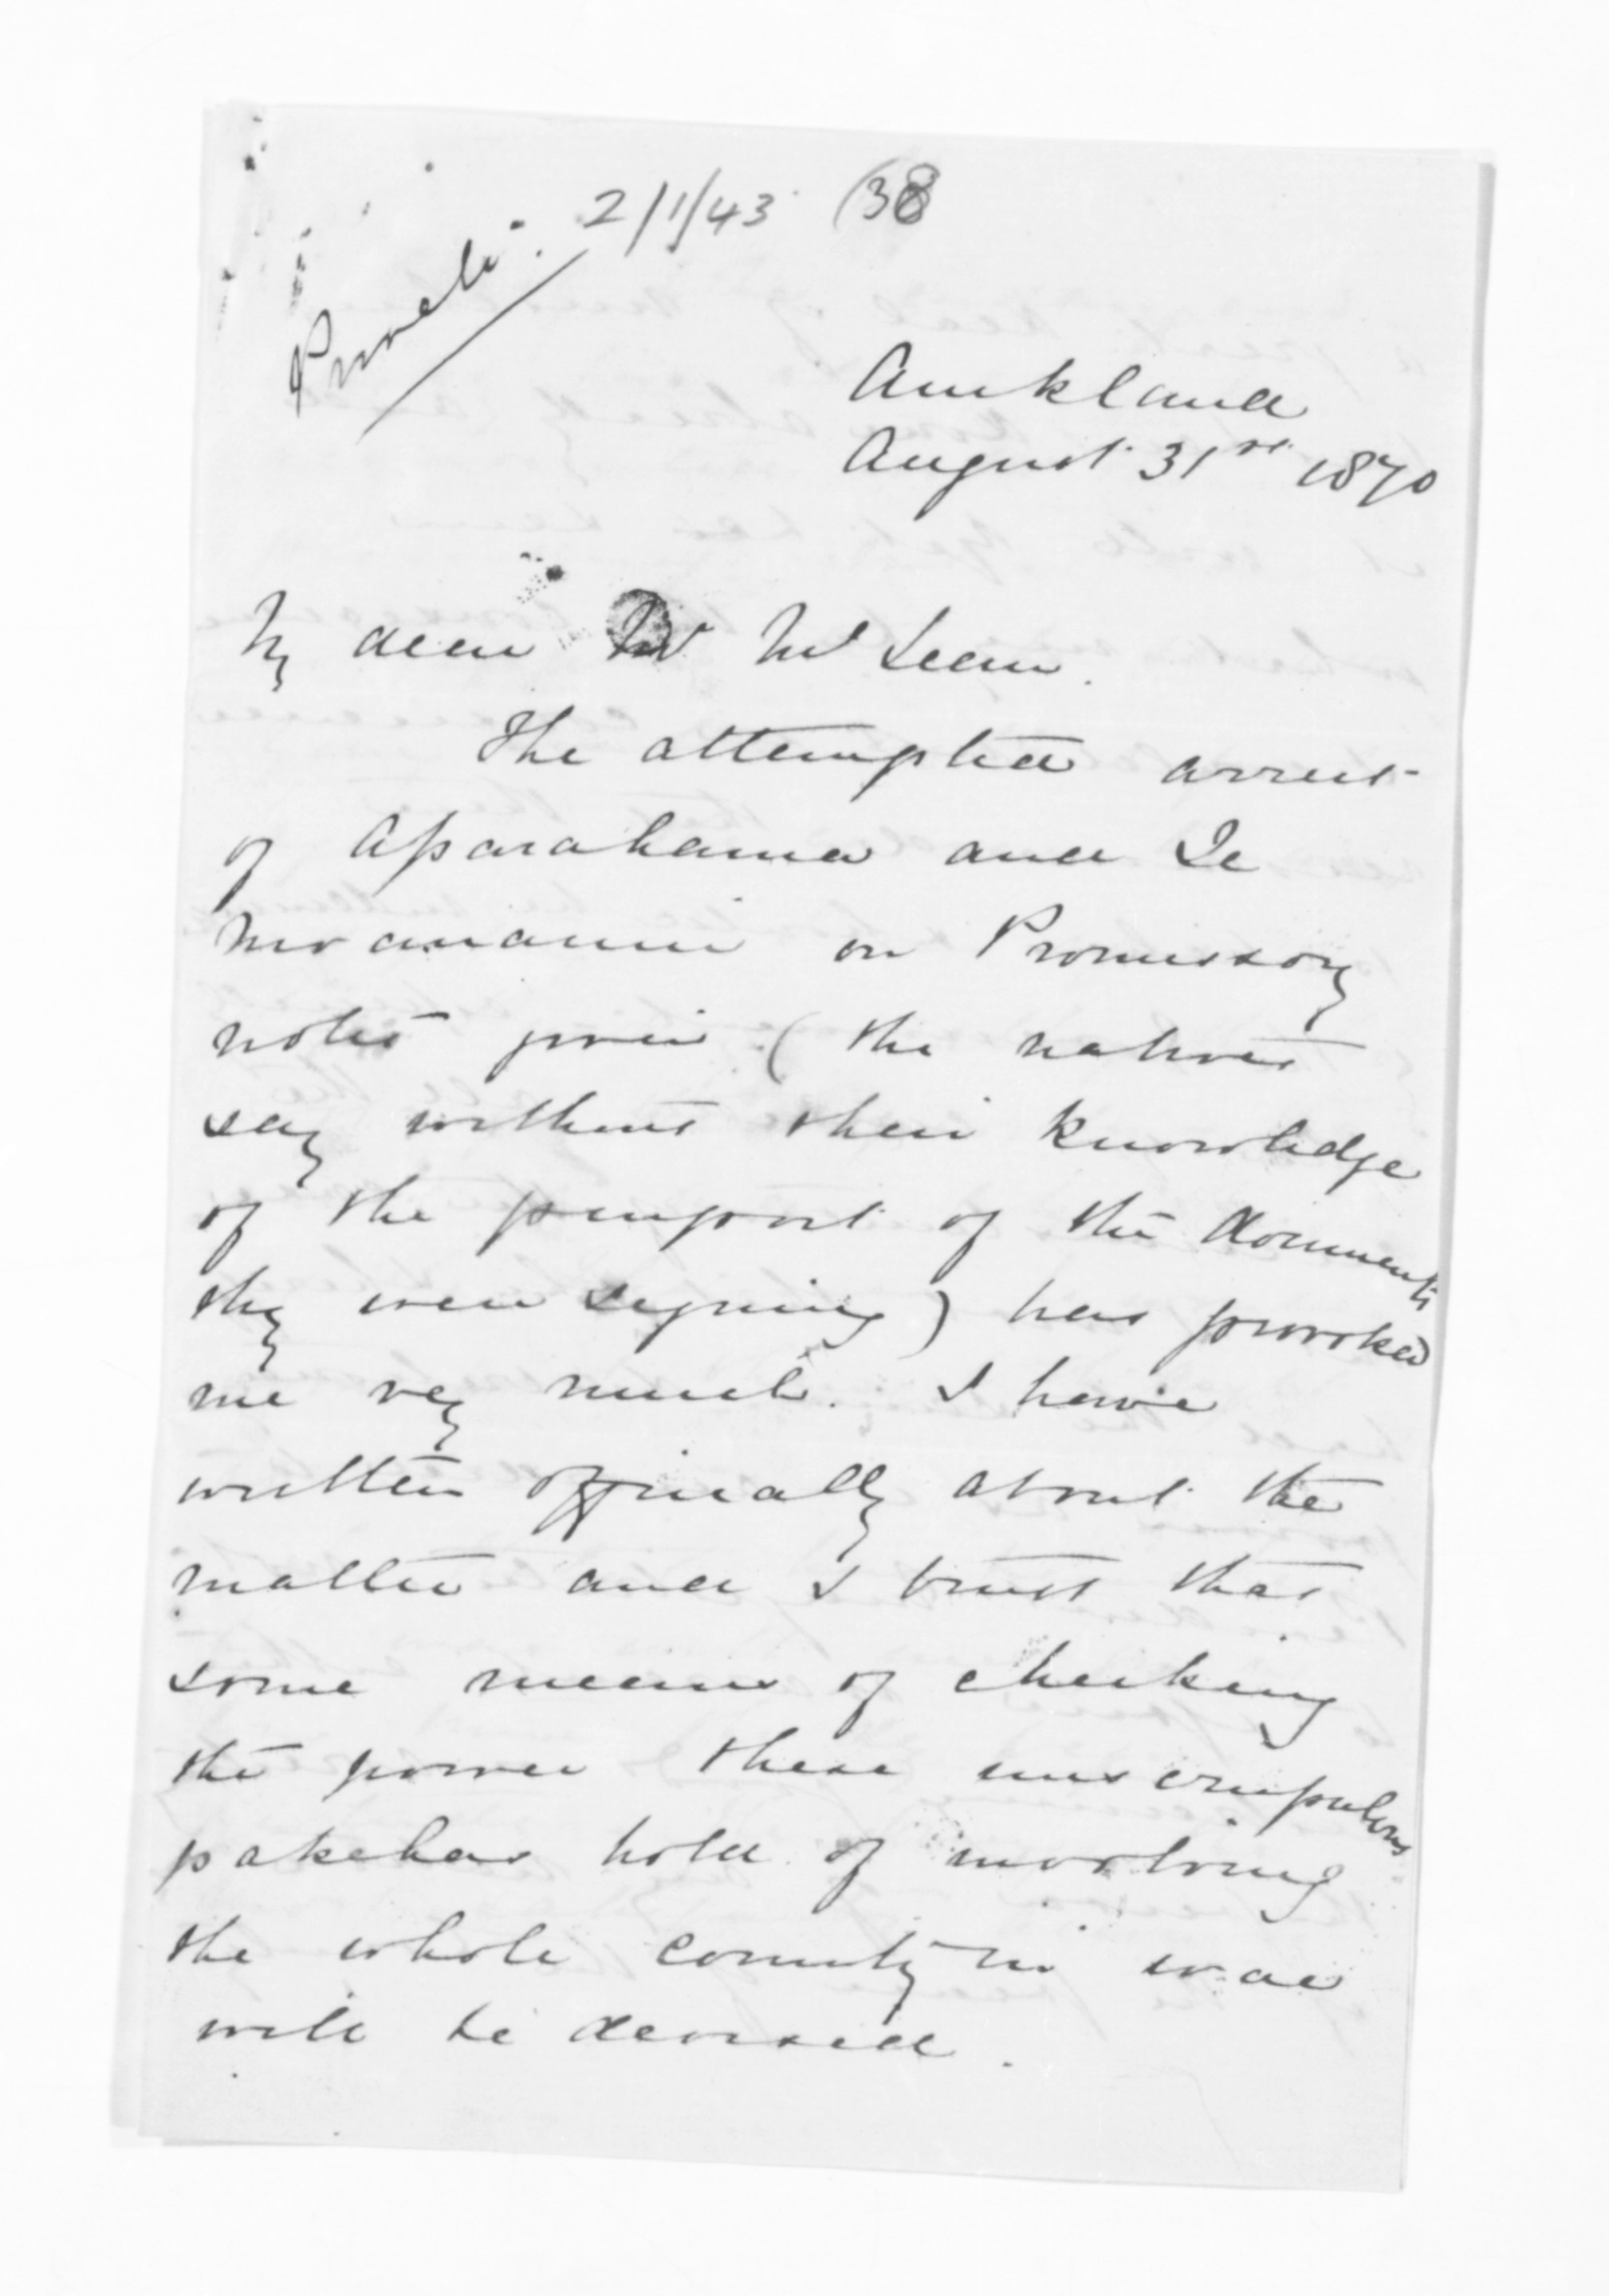 2/1/43 (38
Private
Auckland
August 31st 1870
My dear Mr McLean.
The attempted arrest
of Aparahama and Te
Moananui on Promissory
notes given (the natives
say without their knowledge
of the purport of the documents
they were signing) has provoked
me very much. I have
written officially about the
matter and I trust that
some means of checking
the power these unscrupulous
pakehas hold of involving
the whole country in war
will be devised.